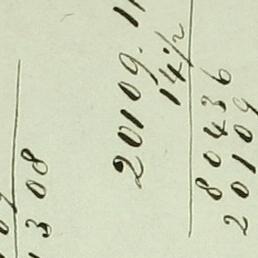 308
20109.
14 1/2
80436
20109